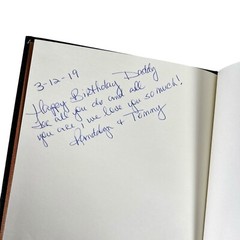 3-12-19
Happy Birthday Daddy
For all you do and all
you are! we love you so much!
+ Tommy